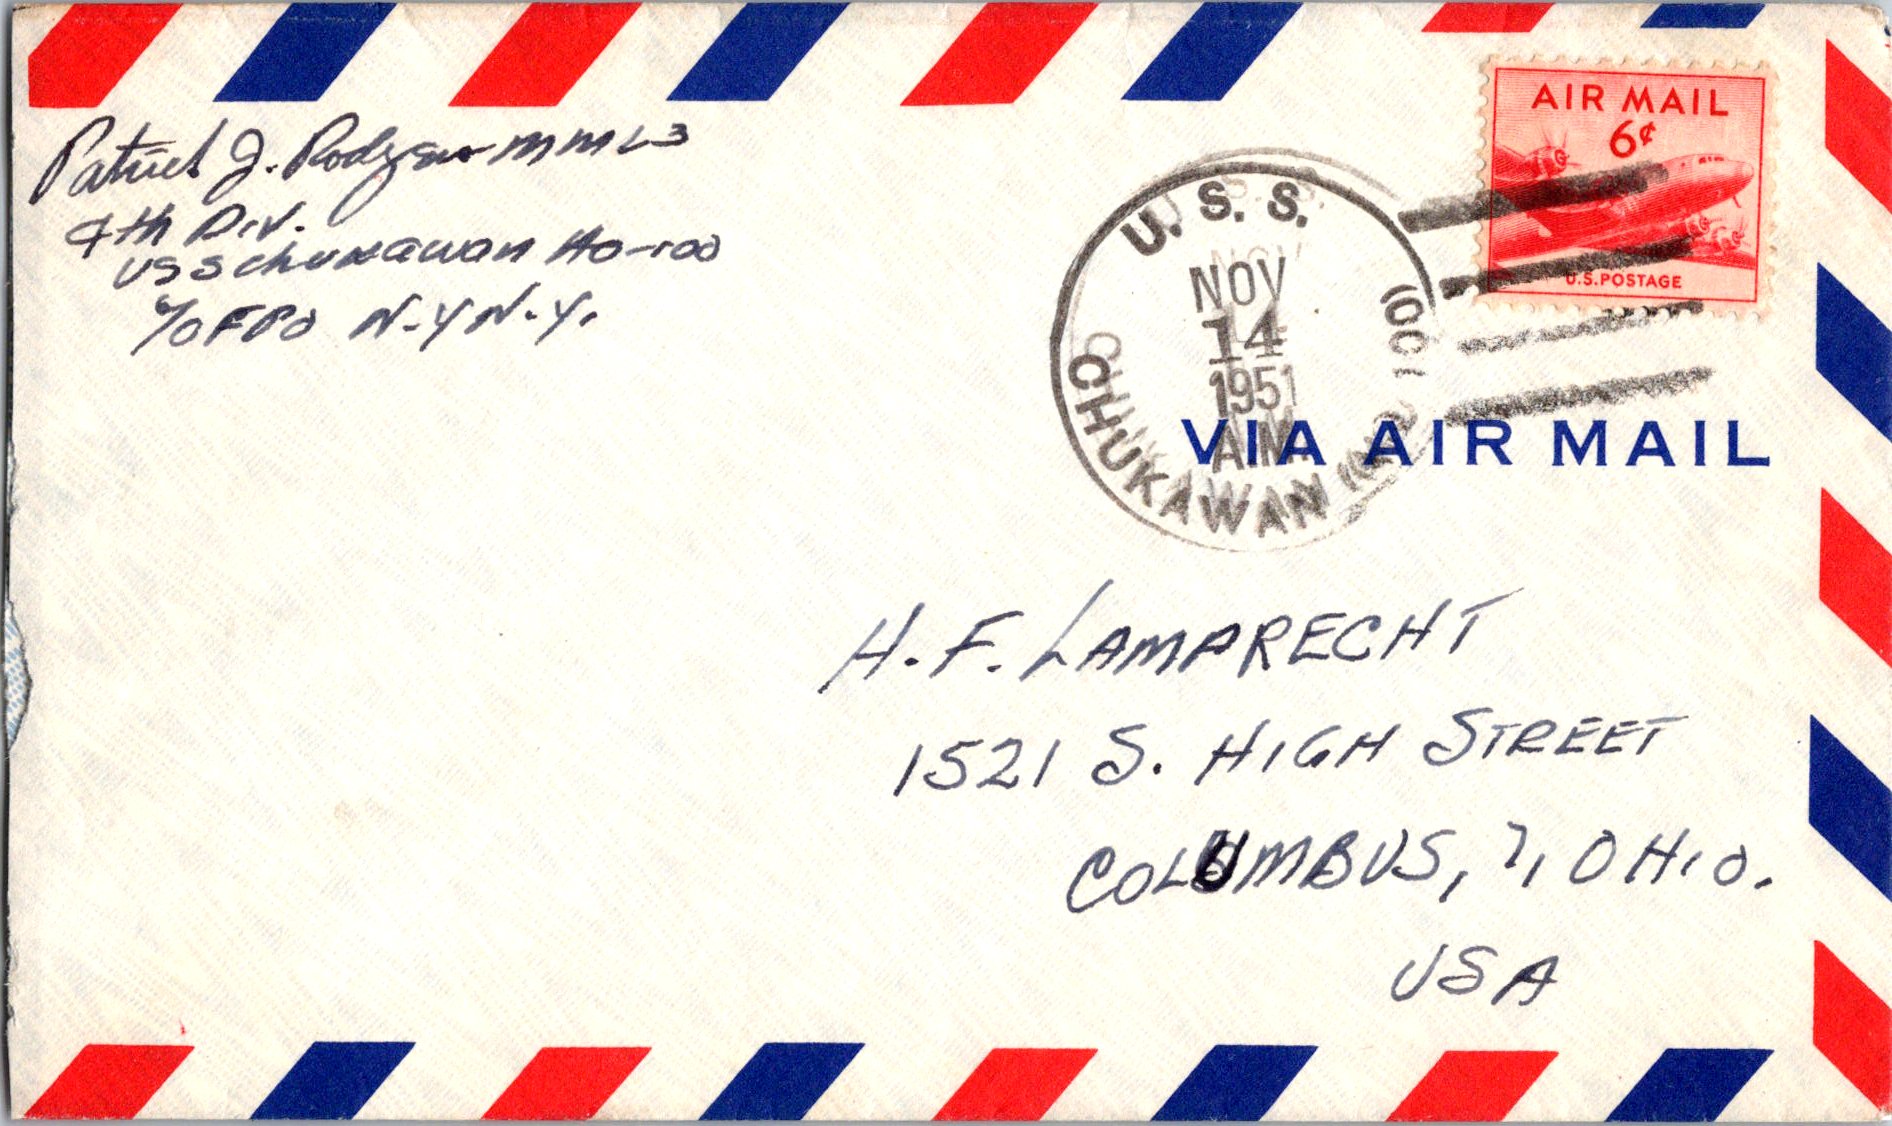 Patrick J. Rodgers MML3
4th Div.
USS Chukawan AO-100
℅ FPO N.Y N.Y.
AIR MAIL
6¢
U.S. POSTAGE
U. S. S.
NOV
14
1951
A.M.
CHUKAWAN (100)
VIA AIR MAIL
H. F. LAMPRECHT
1521 S. HIGH STREET
COLUMBUS, 7, OHIO.
USA